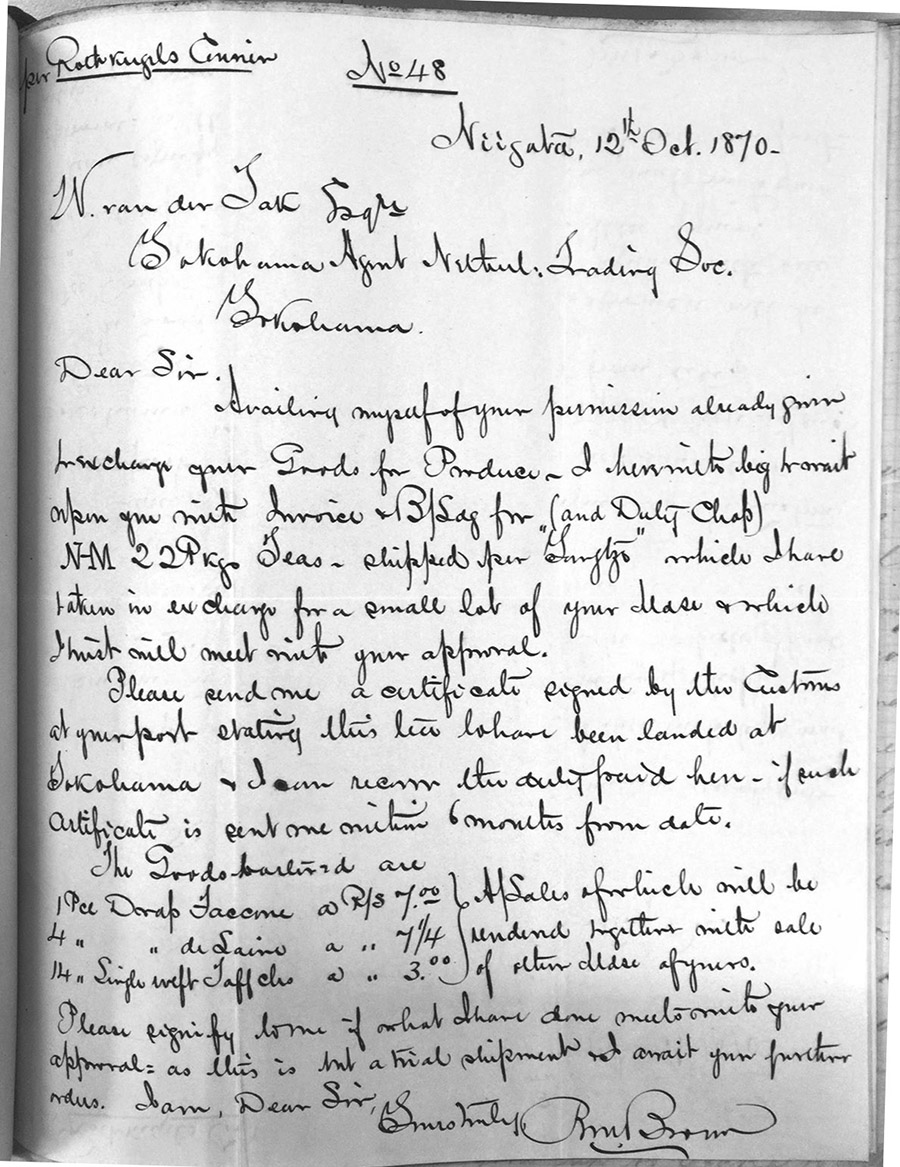 per Rothkugels Courier
No 48
Niigata, 12th Oct. 1870-
W. van der Tak Esqre
Yokohama Agent Netherl: Trading Soc.
Yokohama.
Dear Sir.
Availing myself of your permission already given
to exchange your Goods for Produce - I herewith beg to wait
upon you with Invoice & B/Ldg for (and Duty Chop)
N-M 22 Pkgs Teas - shipped per "Yangtze" which I have
taken in exchange for a small lot of your Mdse & which
I trust will meet with your approval.
Please send me a certificate signed by the Customs
at your port stating this tea to have been landed at
Yokohama & I can recover the duty paid here - if such
certificate is sent me within 6 months from date.
The Goods bartered are
1 Pce Drap Faccone a R/s 7.00 } A/Sales of which will be
4 " " de Laine a " 7 1/4 } rendered together with sale
14 " Single weft Taffchs a " 3.00 } of other Mdse of yours.
Please signify to me if what I have done meets with your
approval = as this is but a trial shipment & I await your further
orders. I am, Dear Sir,
Yours truly, Brown